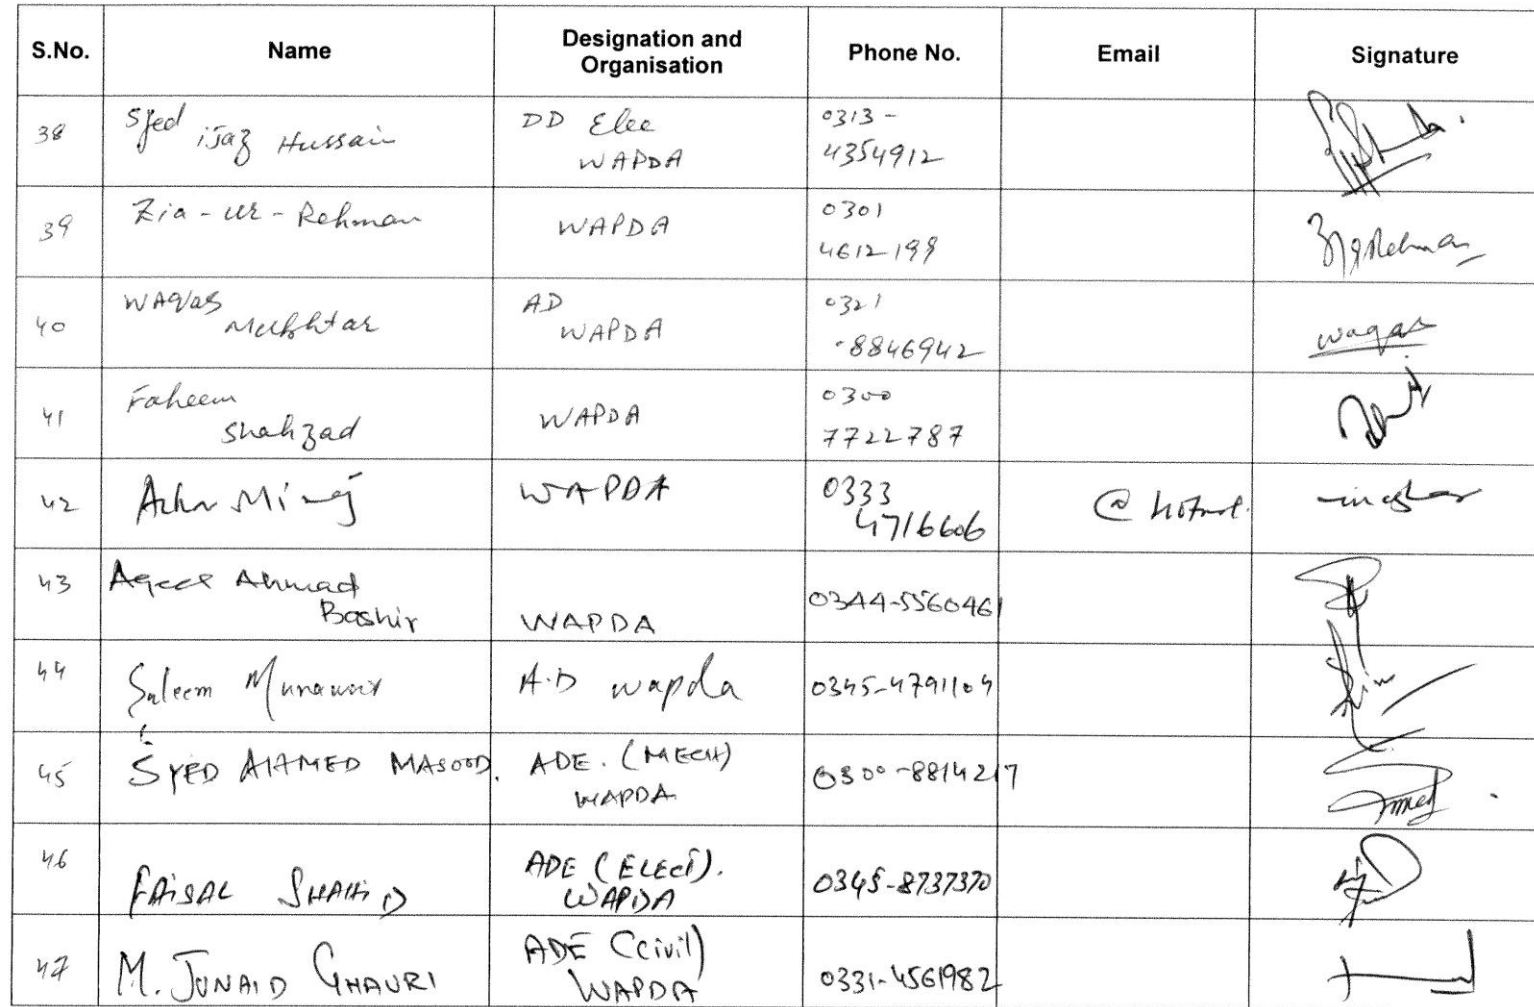 S.No. Name Designation and Organisation Phone No. Email Signature
38 Syed ijaz Hussain DD Elec WAPDA 0313-4354912
39 Zia-ur-Rehman WAPDA 0301 4612199
40 WAQAS Mukhtar AD WAPDA 0321-8846942 waqas
41 Faheem Shahzad WAPDA 0300 7722787
42 WAPDA 0333 4716606
43 Aqeel Ahmad Bashir WAPDA 0344-5560461
44 Saleem Munawar A.D wapda 0345-4791104
45 SYED AHAMED MASOOD. ADE. (MECH) WAPDA 0300-8814217
46 FAISAL SHAHID ADE (ELECT). WAPDA 0345-8737370
47 M. JUNAID GHAURI ADE (civil) WAPDA 0331-4561982